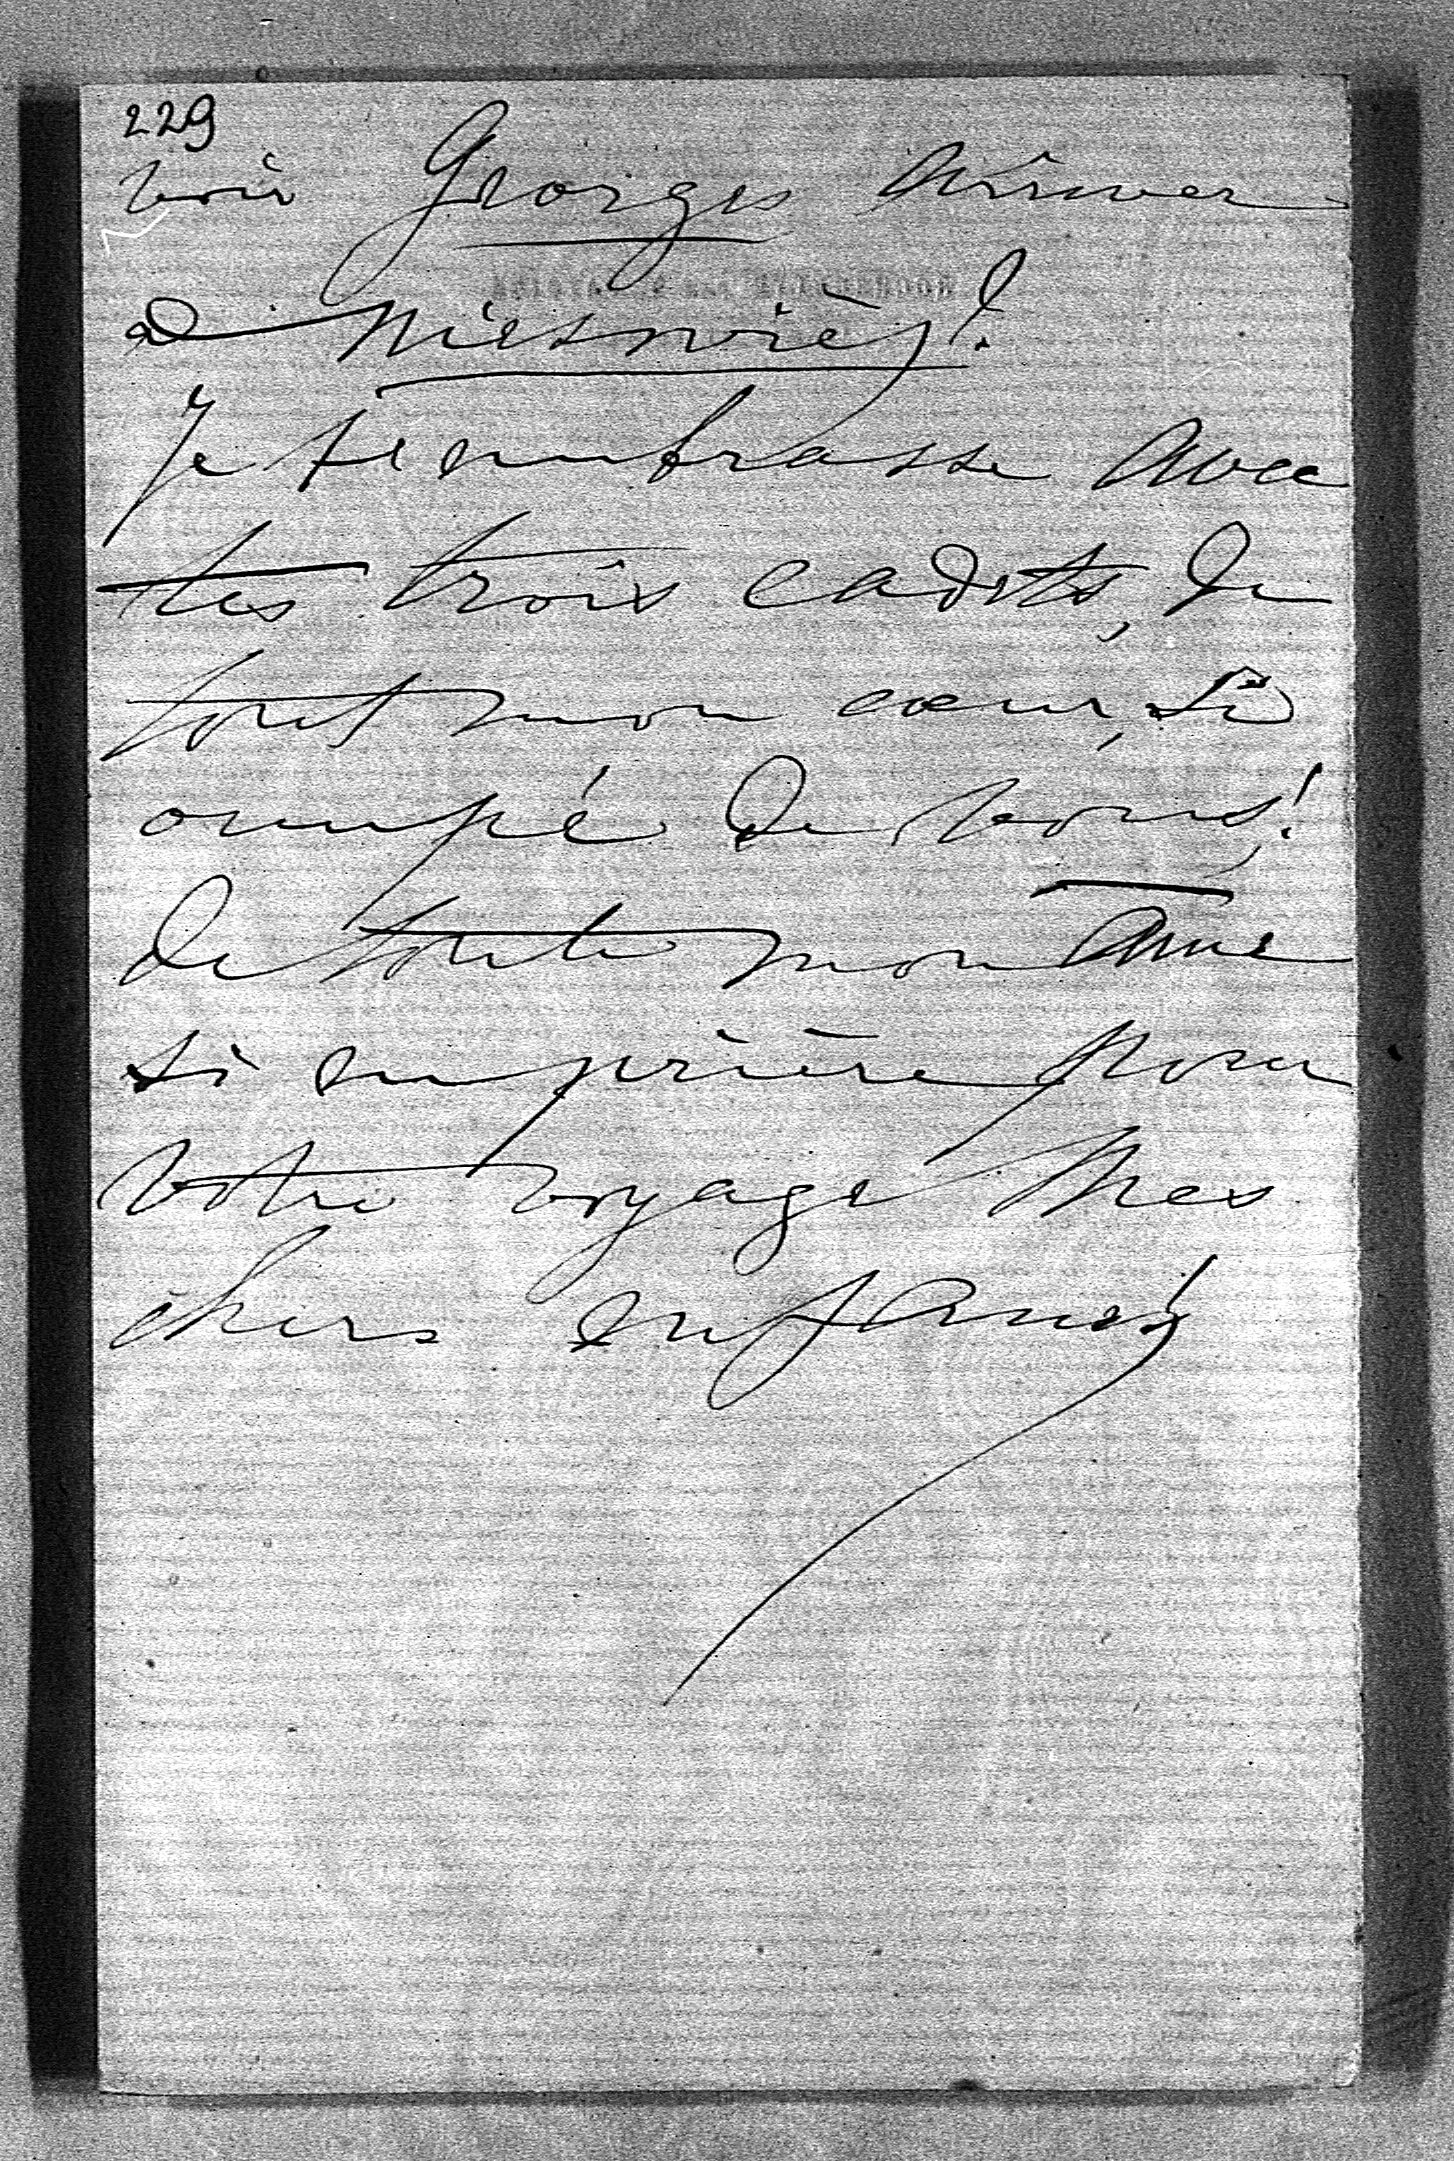 229
voir Georges arriver
de Nieswiès?
Je t'embrasse avec
tes trois cadets, de
tout mon cœur, si
occupé de vous!
de toute mon âme
si en prière pour
votre voyage mes
chers enfants!